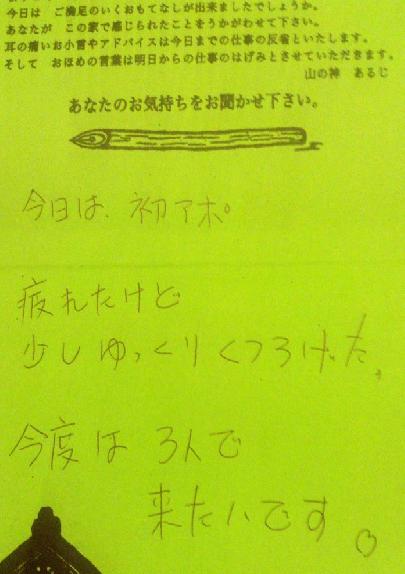 今日は ご満足のいくおもてなしが出来ましたでしょうか。
あなたが この家で感じられたことをうかがわせて下さい。
耳の痛いお小言やアドバイスは今日までの仕事の反省といたします。
そして おほめの言葉は明日からの仕事のはげみとさせていただきます。
山の神 あるじ
あなたのお気持ちをお聞かせ下さい。
今日は、初アポ。
疲れたけど
少しゆっくりくつろげた。
今度は 3人で
来たいです。